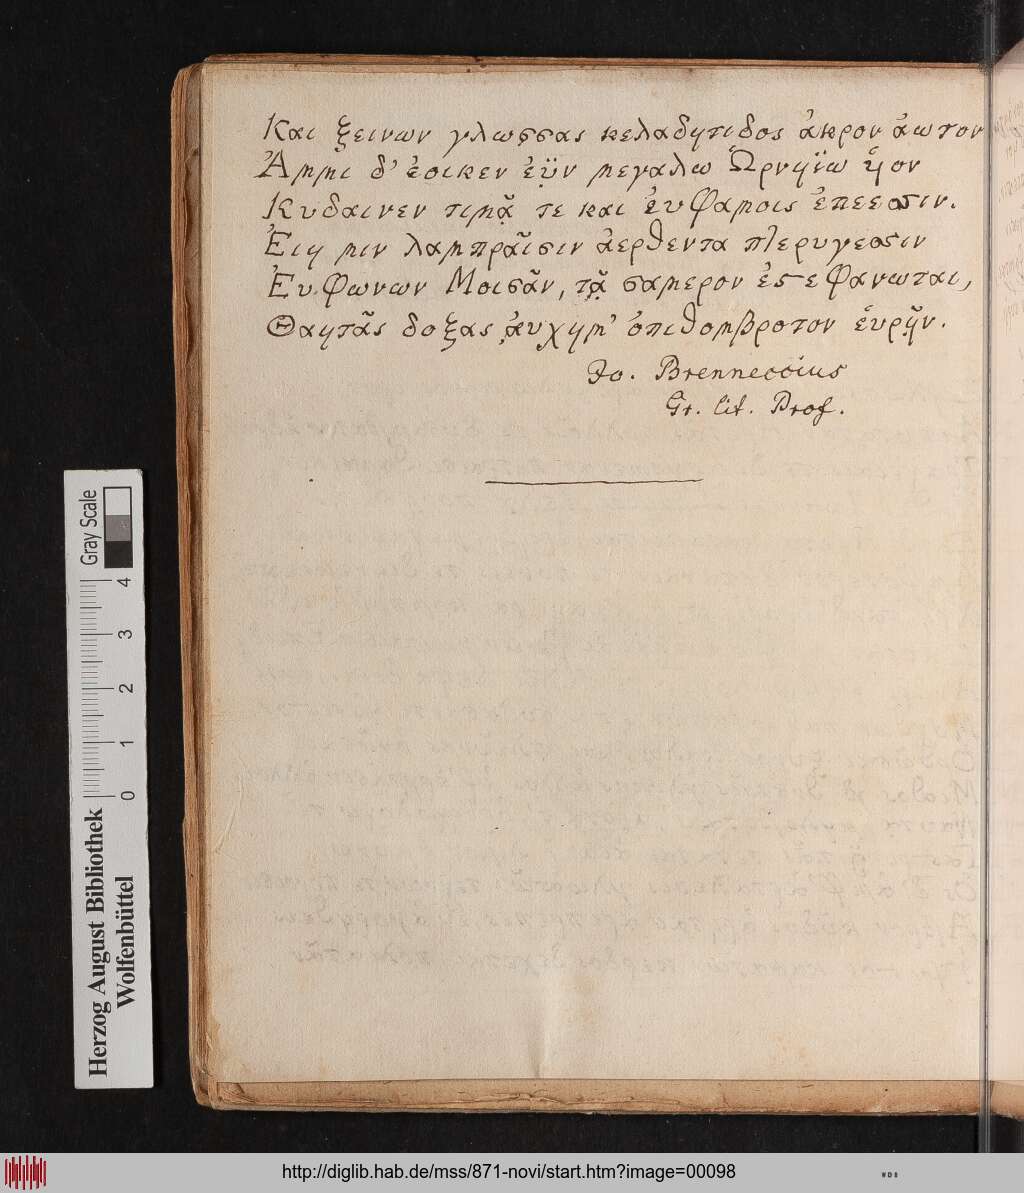 Και ξεινων γλωσσας κελαδητιδος ἀκρον ἀωτον
Ἀμμι δ' ἐοικεν ἐϋν μεγαλω Ὡρνηϊω ᾑον
Κυδαινεν τιμᾷ τε και ἐυφαμοις ἐπεεσσιν.
Ἐιη μιν λαμπραῖσιν ἀερθεντα πτερυγεσσιν
Ἐυφωνων Μοισᾶν, τᾷ σαμερον ἐστεφανωται,
Θαητᾶς δοξας ἀυχημ' ὀπιθομβροτον ἑυρῇν.
Jo. Brenneccius
Gr. lit. Prof.
Gray Scale
4
3
2
1
0
Herzog August Bibliothek
Wolfenbüttel
http://diglib.hab.de/mss/871-novi/start.htm?image=00098
WDB